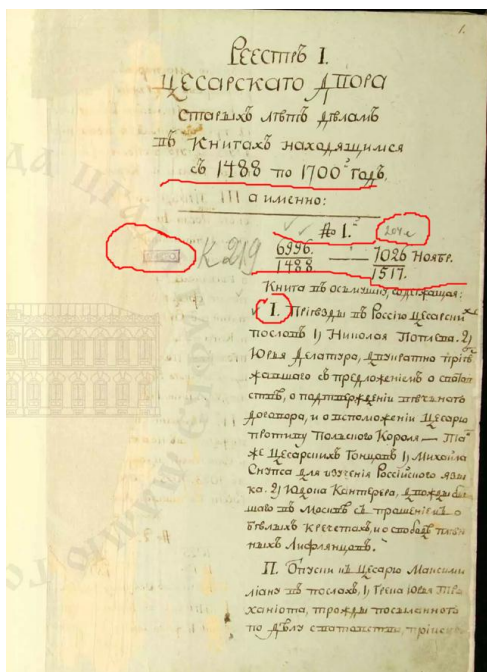 1.
Реестръ I.
Цесарскаго Двора
старыхъ лѣтъ дѣламъ
въ Книгахъ находящимся
съ 1488 по 1700 годъ,
а именно:
№ 1.
К 219 6996. — 7026 Ноябр.
1488 1517.
Книга въ осьмушку, содержащая:
I. Прїѣзды въ Россїю Цесарских
пословъ 1) Николая Поплева. 2)
Юрья Делатора, двукратно прїѣз
жавшаго съ предложенїемъ о сватов
ствѣ, о подтвержденїи вѣчнаго
договора, и о вспоможенїи Цесарю
противу Польскаго Короля — Так
же Цесарскихъ Гонцовъ 1) Михайла
Снупса для изученїя Россїйскаго язы
ка. 2) Юдока Кантерера, дважды бы
шаго въ Москвѣ съ прошенїемъ о
бѣлыхъ кречетахъ, и о свободѣ плѣн
ныхъ Лифляндцовъ.
II. Отпуски къ Цесарю Максими
лїану въ послахъ, 1) Грека Юрья Тра
ханїота, трожды посыланнаго
по дѣлу сватовства,